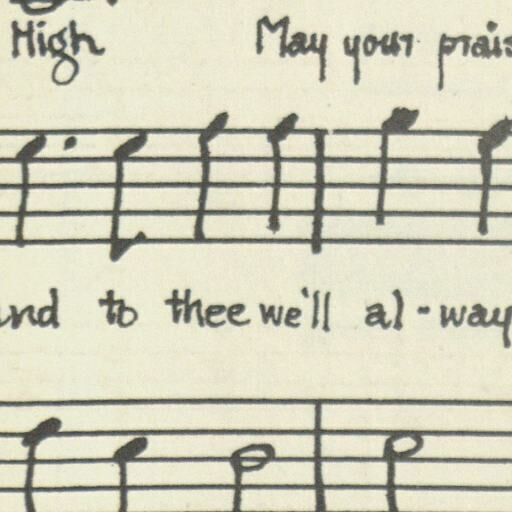 High May your prais
and to thee we'll al-way